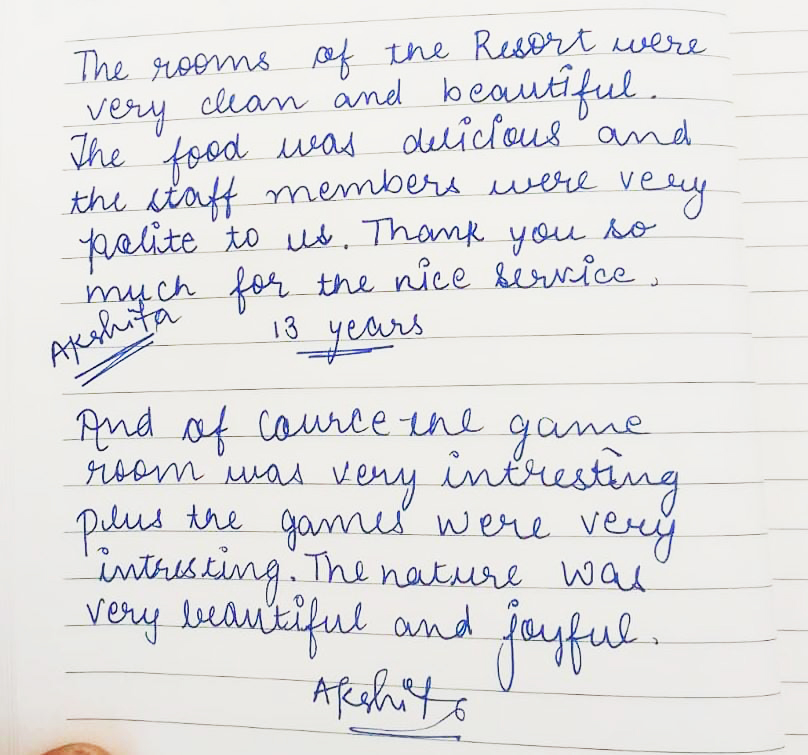 The rooms of the Resort were
very clean and beautiful.
The food was delicious and
the staff members were very
polite to us. Thank you so
much for the nice service.
Akshita 13 years
And of cource the game
room was very intresting
plus the games were very
intresting. The nature was
very beautiful and joyful.
Akshita